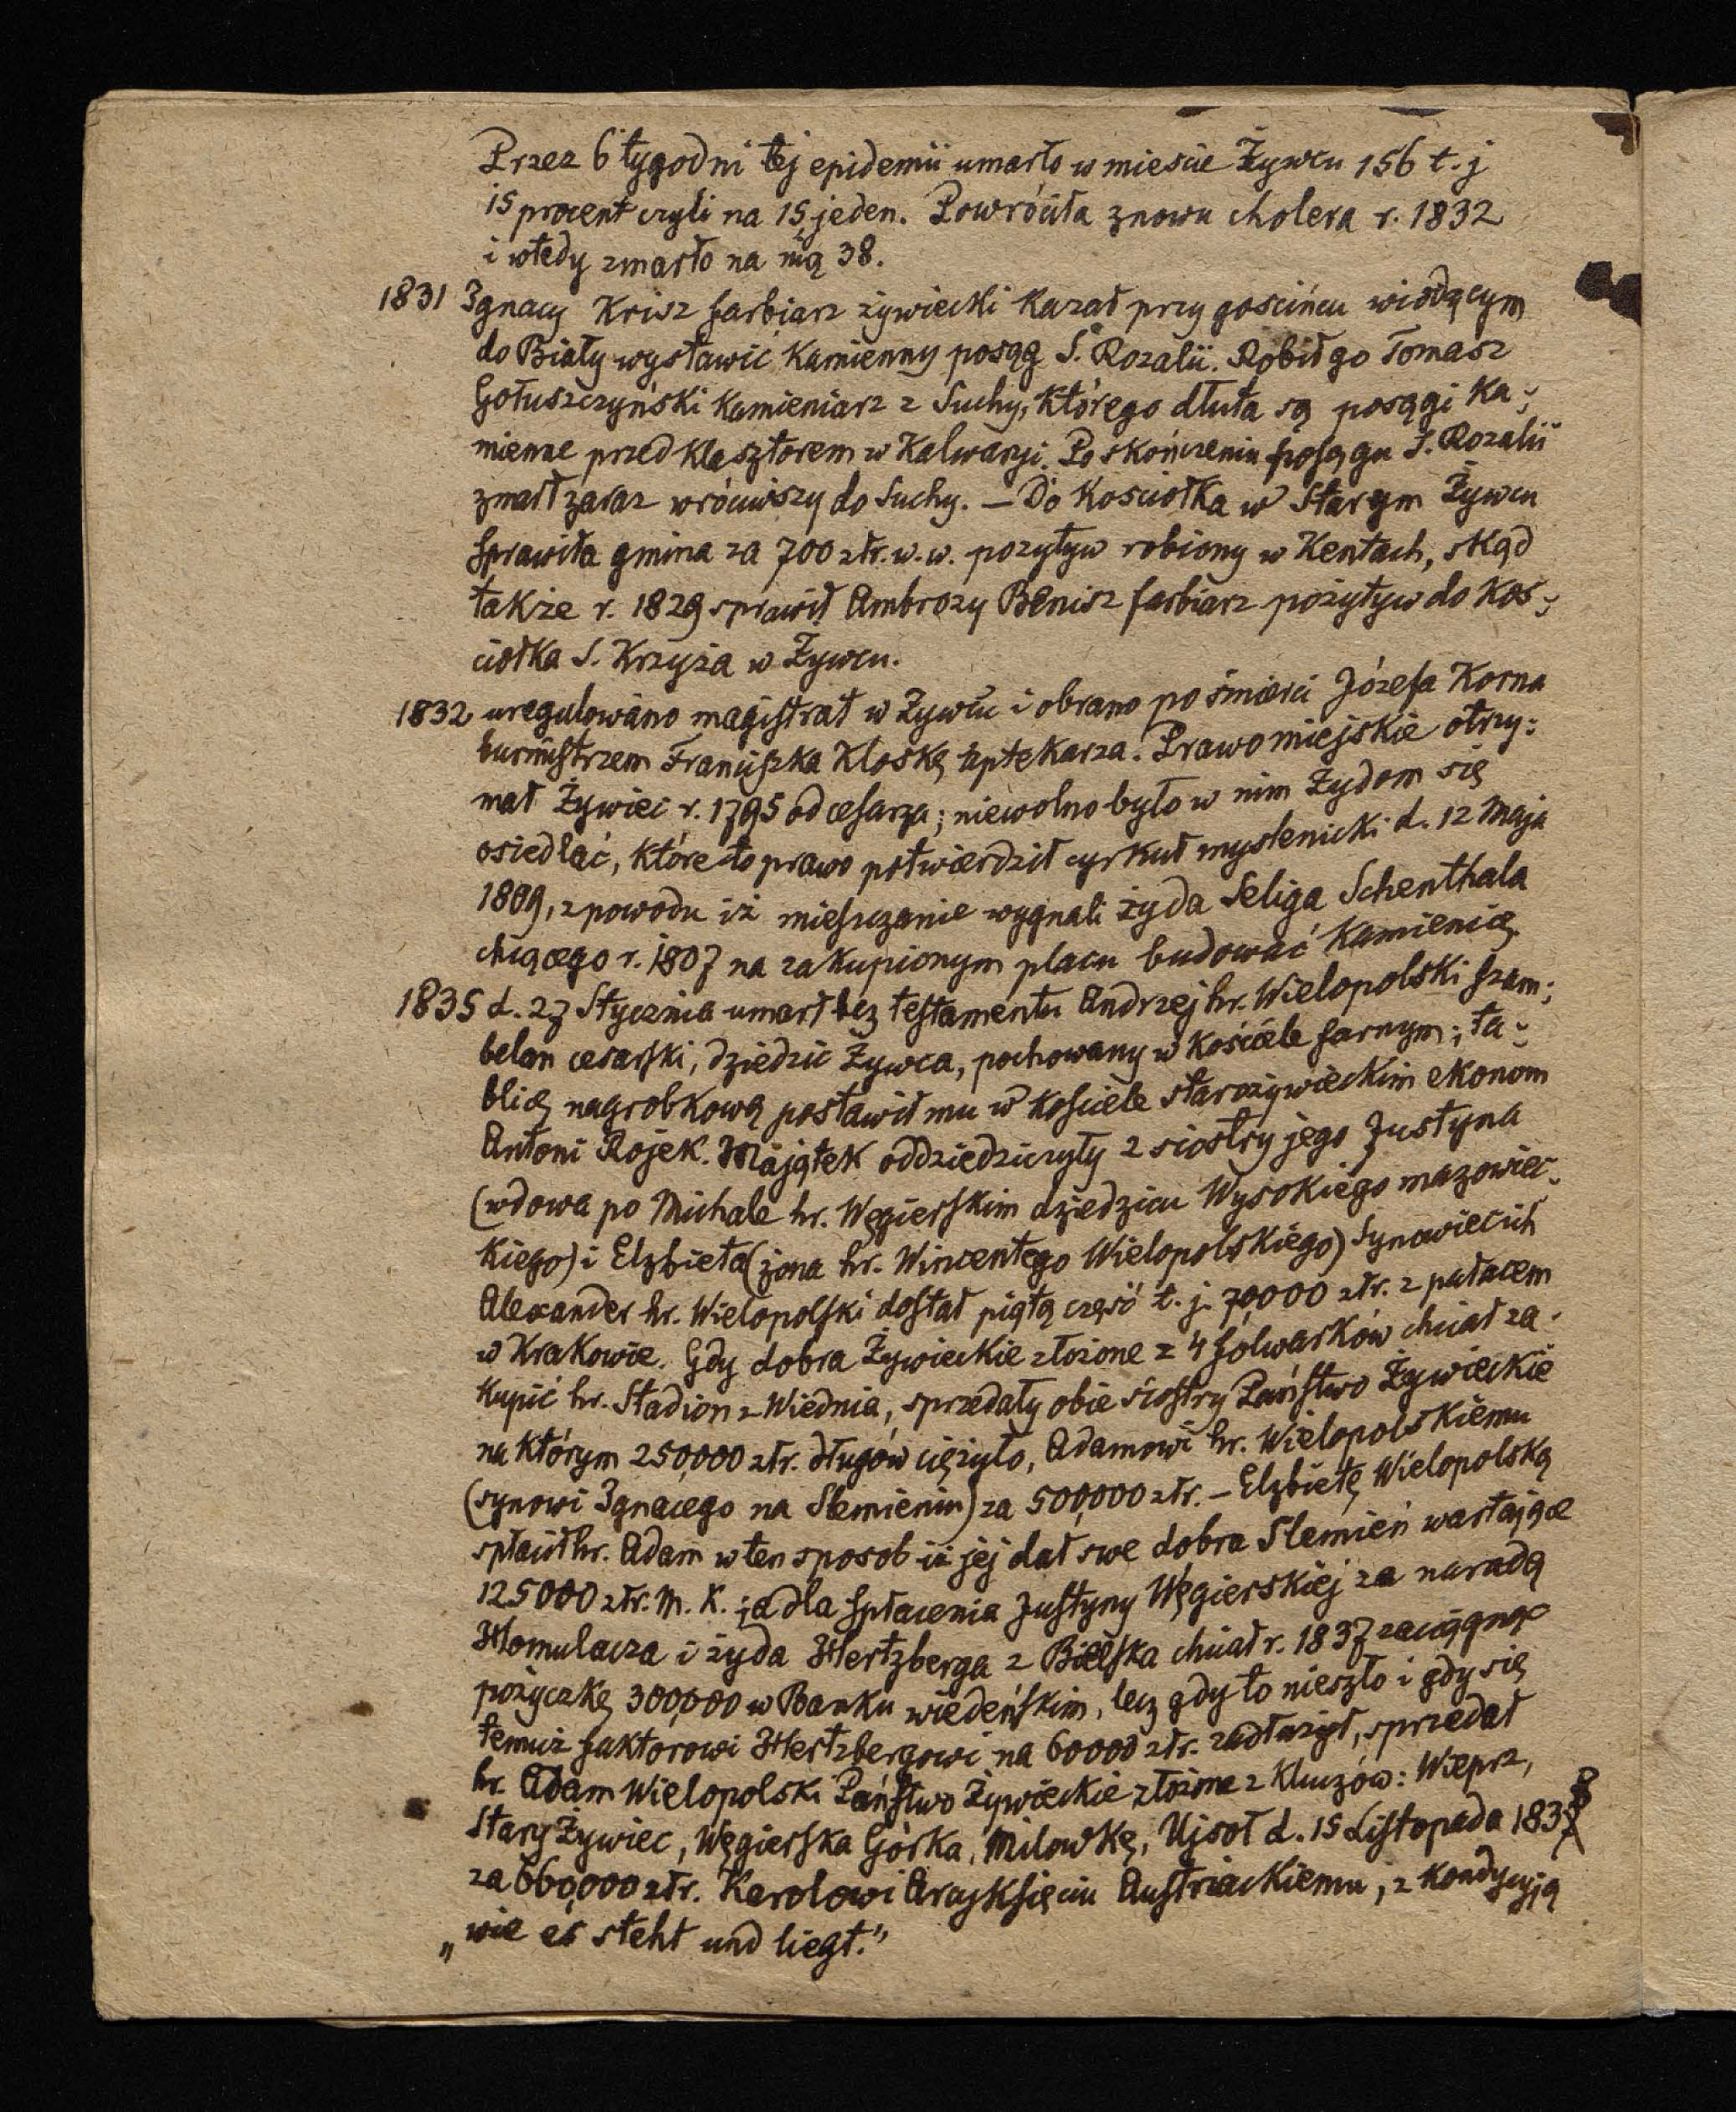 Przez 6 tygodni tej epidemii umarło w mieście Żywcu 156 t. j
15 procent czyli na 15 jeden. Powróciła znowu cholera r. 1832
i wtedy zmarło na nią 38.
1831 Ignacy Krisz farbiarz żywiecki kazał przy gościńcu wiodącym
do Biały wystawić kamienny posąg Ś. Rozalii. Robił go Tomasz
Gołuszczyński kamieniarz z Suchy, którego dłuta są posągi ka-
mienne przed klasztorem w Kalwaryi. Po skończeniu posągu S. Rozalii
zmarł zaraz wróciwszy do Suchy. — Do Kościołka w Starym Żywcu
sprawiła gmina za 700 złr. w. w. pozytyw robiony w Kentach, skąd
także r. 1829 sprawił Ambrozy Benisz farbiarz pozytyw do koś-
ciołka S. Krzyża w Żywcu.
1832 uregulowano magistrat w Żywcu i obrano po śmierci Józefa Korna
burmistrzem Franciszka Kloskę aptekarza. Prawo miejskie otrzy:
mał Żywiec r. 1795 od cesarza; niewolno było w nim Żydom się
osiedlać, które to prawo potwierdził cyrkuł myslenicki d. 12 Maja
1809, z powodu iż mieszczanie wygnali żyda Seliga Schenthala
chcącego r. 1807 na zakupionym placu budować kamienicę.
1835 d. 27 Stycznia umarł bez testamentu Andrzej hr. Wielopolski szam:
belan cesarski, dziedzic Żywca, pochowany w kościele farnym; ta-
blicę nagrobkową postawił mu w kościele starożywieckim ekonom
Antoni Rojek. Majątek oddziedziczyły 2 siostry jego Justyna
(wdowa po Michale hr. Węgierskim dziedzicu Wysokiego mazowiec-
kiego) i Elzbieta (żona hr. Wincentego Wielopolskiego) Synowiec ich
Alexander hr. Wielopolski dostał piątą część t. j. 70000 złr. z pałacem
w Krakowie. Gdy dobra Żywieckie złożone z 4 folwarków chciał za-
kupić hr. Stadion z Wiednia, sprzedały obie siostry Państwo Żywieckie
na którym 250,000 złr. długów ciężyło, Adamowi hr. Wielopolskiemu
(synowi Ignacego na Slemieniu) za 500,000 złr. — Elzbietę Wielopolską
spłacił hr. Adam w ten sposob iż jej dał swe dobra Slemień wartające
125000 złr. M. K. ; a dla spłacenia Justyny Węgierskiej za naradą
Homulacza i żyda Hertzberga z Bielska chciał r. 1837 zaciągnąć
pożyczkę 300,000 w Banku wiedeńskim, lecz gdy to nieszło i gdy się
temuż faktorowi Hertzbergowi na 60000 złr. zadłużył, sprzedał
hr. Adam Wielopolski Państwo Żywieckie złożone z Kluczów: Wieprz,
Stary Żywiec, Węgierska Górka, Milowkę, Ujsoł d. 15 Listopada 1838
za 660,000 złr. Karolowi Arcyksięciu Austriackiemu, z kondycyją
„wie es steht und liegt."